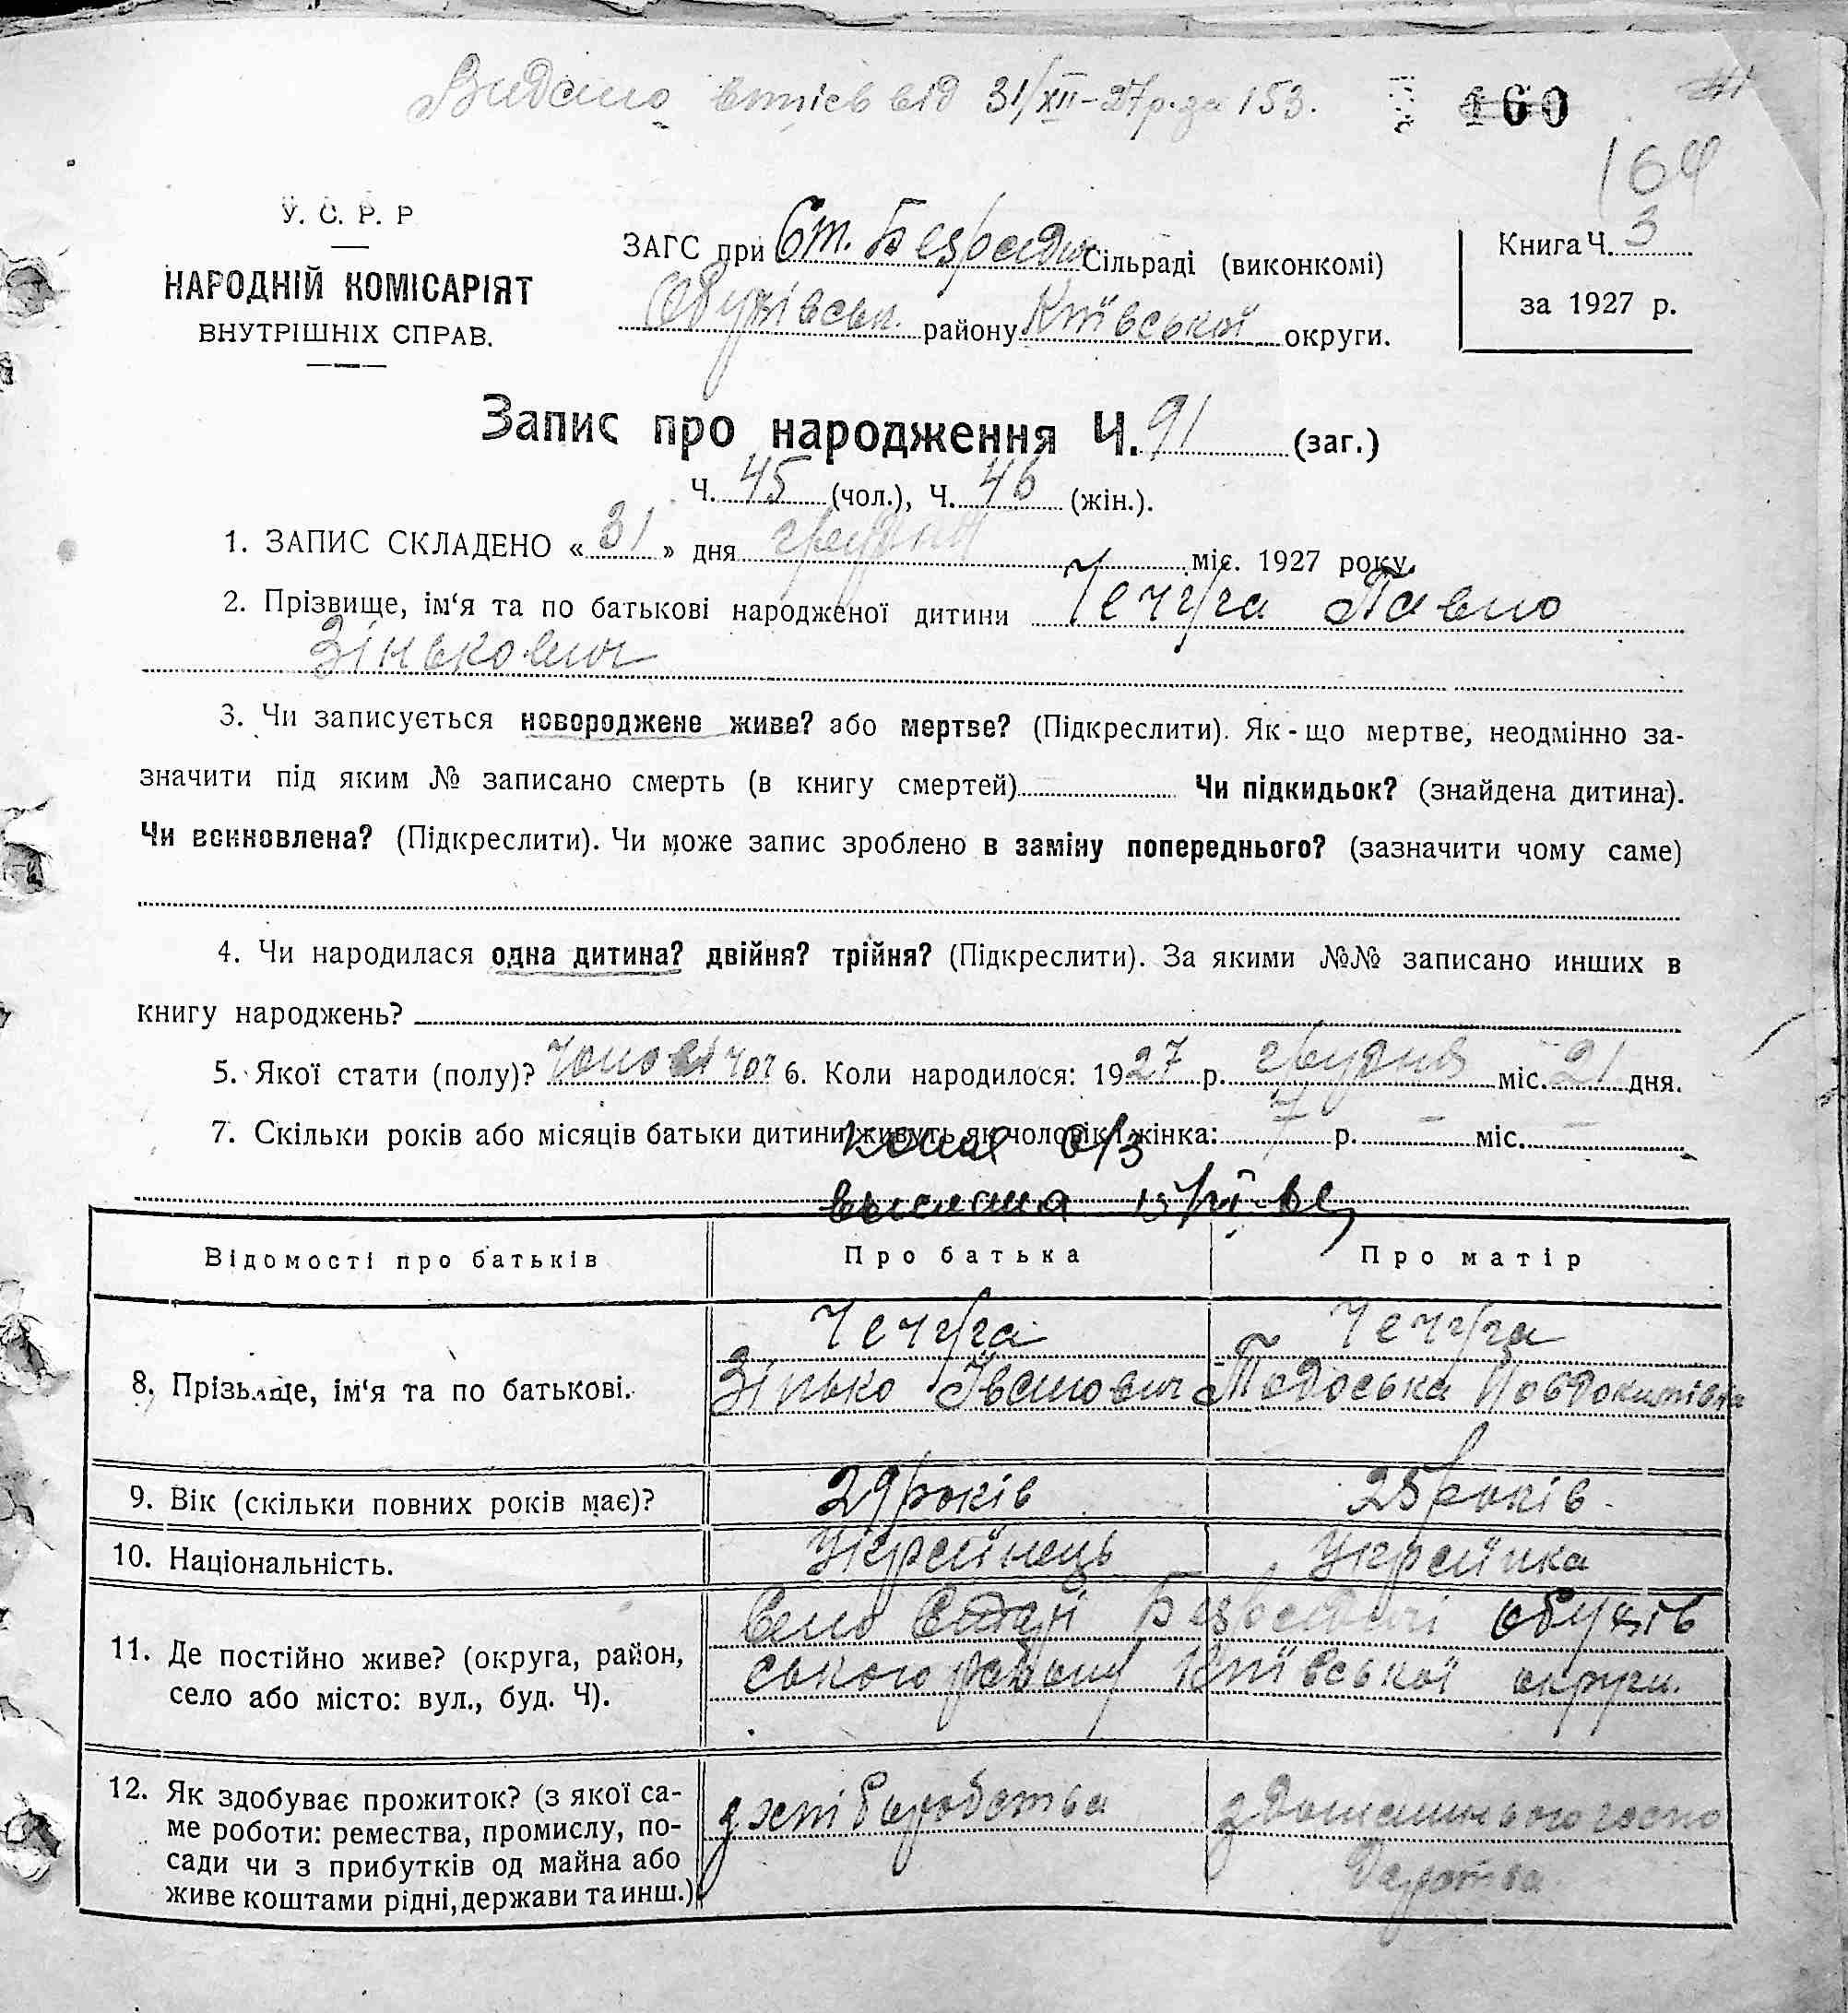 Видано витяг від 31/XII-27р. за 153.
160
164
У. С. Р. Р
НАРОДНІЙ КОМІСАРІЯТ
ВНУТРІШНІХ СПРАВ.
ЗАГС при Ст. Безрадич Сільраді (виконкомі)
Обухівськ. району Київської округи.
Книга Ч. 3
за 1927 р.
Запис про народження Ч. 91 (заг.)
Ч. 45 (чол.), Ч. 46 (жін.).
1. ЗАПИС СКЛАДЕНО « 31 » дня грудня міс. 1927 року.
2. Прізвище, ім‘я та по батькові народженої дитини Чечуга Павло
Зінькович
3. Чи записується новороджене живе? або мертве? (Підкреслити). Як - що мертве, неодмінно за-
значити під яким № записано смерть (в книгу смертей) Чи підкидьок? (знайдена дитина).
Чи всиновлена? (Підкреслити). Чи може запис зроблено в заміну попереднього? (зазначити чому саме)
4. Чи народилася одна дитина? двійня? трійня? (Підкреслити). За якими №№ записано инших в
книгу народжень?
5. Якої стати (полу)? Чоловічої 6. Коли народилося: 1927 р. грудня міс. 21 дня.
7. Скільки років або місяців батьки дитини живуть як чоловік і жінка: 7 р. – міс. –
копия о/з
выслана
Відомості про батьків
Про батька
Про матір
8. Прізвище, ім‘я та по батькові.
Чечуга
Зінько Іванович
Чечуга
Тодоська Йовдокимівна
9. Вік (скільки повних років має)?
29 років
28 років
10. Національність.
Українець
Українка
11. Де постійно живе? (округа, район,
село або місто: вул., буд. Ч).
Село Старі Безрадичі Обухів
ського району Київської округи.
12. Як здобуває прожиток? (з якої са-
ме роботи: ремества, промислу, по-
сади чи з прибутків од майна або
живе коштами рідні, держави та инш.)
з хліборобства
з домашнього госпо
дарства